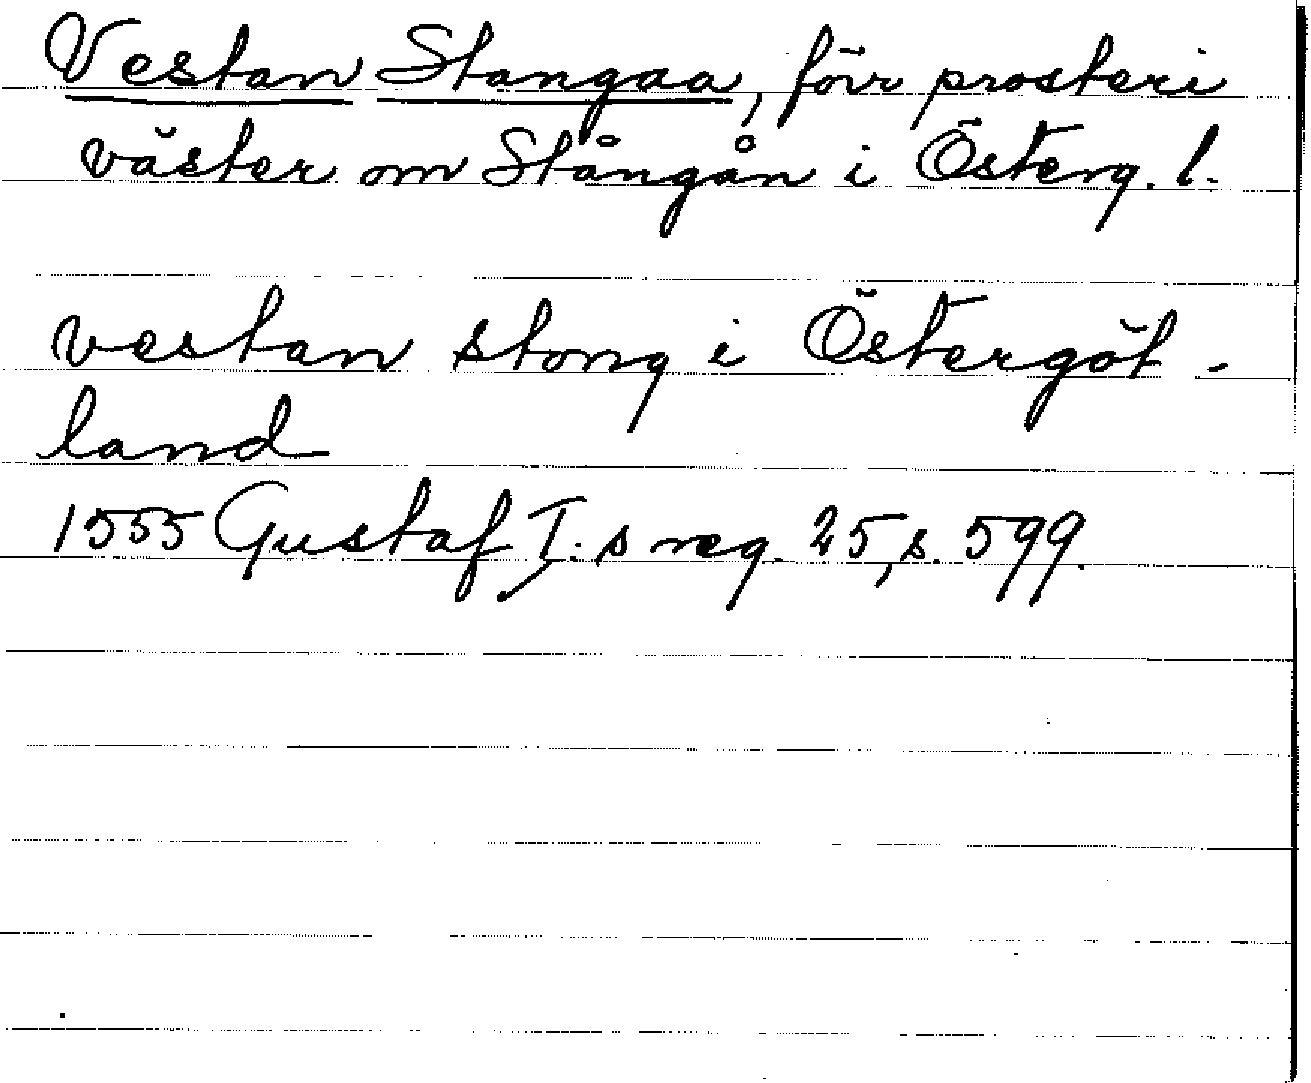 Vestan Stangaa, förr prosteri
väster om Stångån i Österg. l.
vestan stong i Östergöt-
land
1555 Gustaf I:s reg. 25, s. 599.